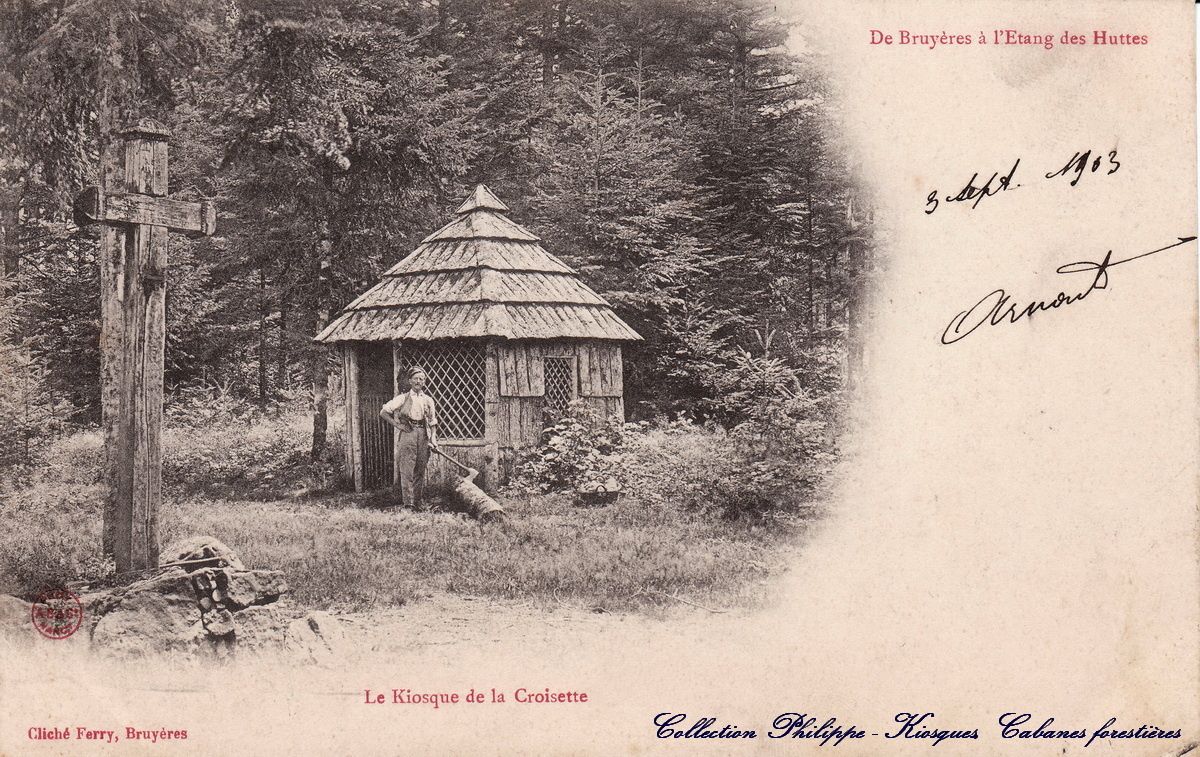 De Bruyères à l'Etang des Huttes
3 sept. 1903
Arnout
Le Kiosque de la Croisette
Cliché Ferry, Bruyères
Collection Philippe - Kiosques Cabanes forestières